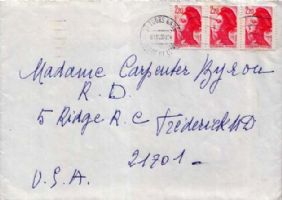 2,20 2,20 2,20
Madame Carpenter Byron
R. D.
5 Ridge R. C Frederick MD
21701 -
U.S.A.